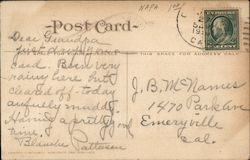 NAPA
Post Card
THIS SPACE FOR ADDRESS ONLY
Dear Grandpa
Just a
card. Been very
rainy here but
cleared off - today
awfully muddy.
Having a pretty good
time.
Blanche Patterson
J. B. McNames
1470 Park Ave
Emeryville
Cal.